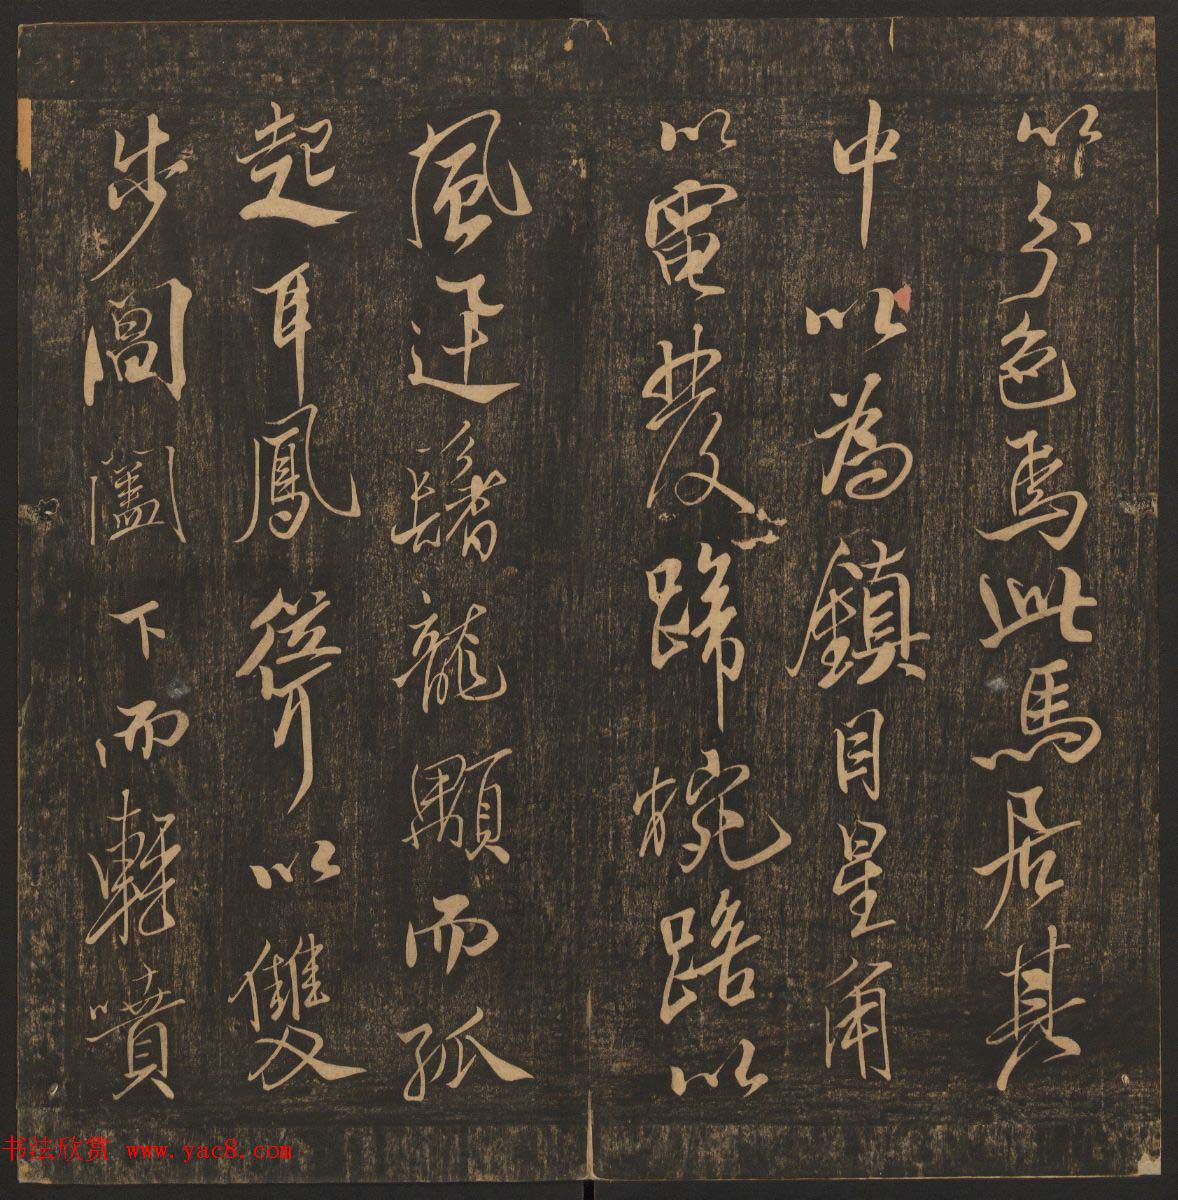 以分色焉此馬居其
中以為鎮目星角
以電發蹄椀踣以
風迅鬐龍顒而孤
起耳鳳聳以雙
步閶闔下而輕噴
书法欣赏 www.yac8.com